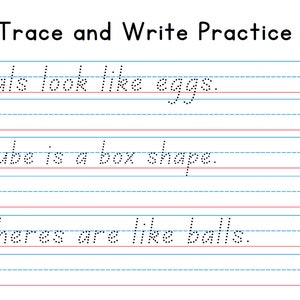 Trace and Write Practice
look like eggs.
is a box shape.
are like balls.